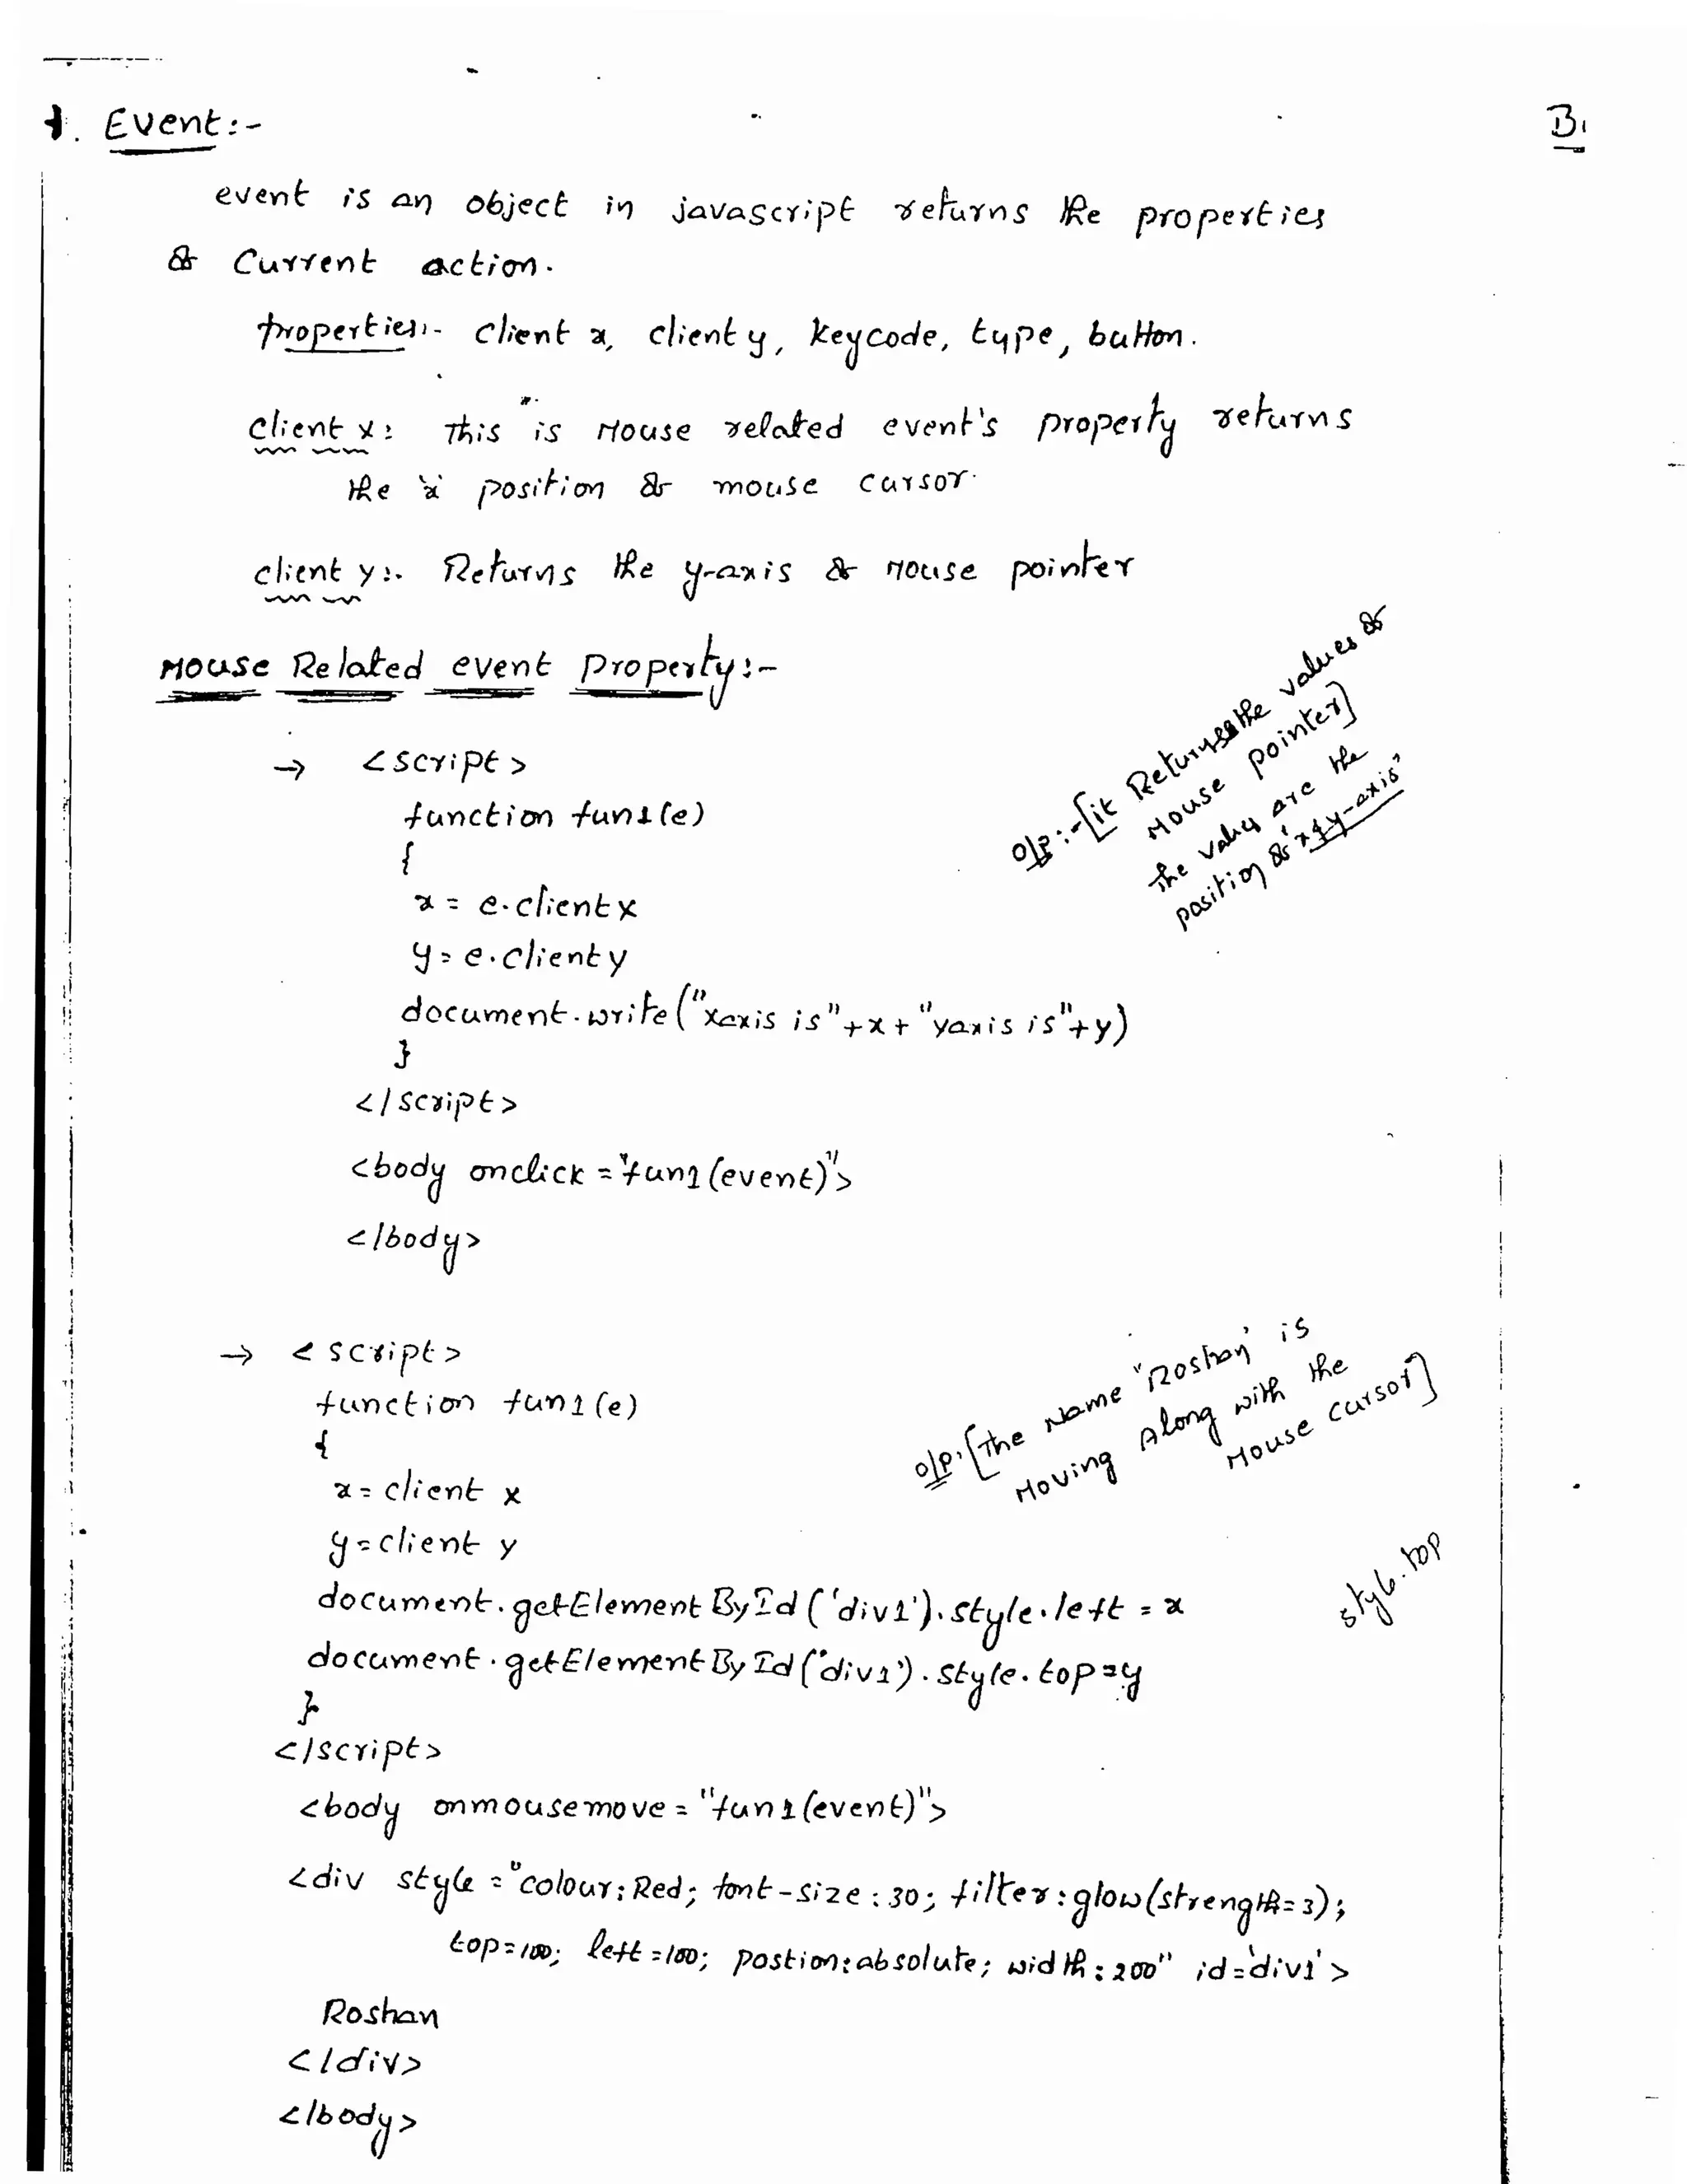 1. Event:-
B1
event is an object in javascript returns the properties
& Current action.
properties:- client x, client y, keycode, type, button.
client x: This is Mouse related event's property returns
the 'x' position & mouse cursor.
client y:. Returns the y-axis & Mouse pointer
Mouse Related event property:-
o/p:-[it Returns the values &
Mouse pointer]
the values are the
position & 'x & y-axis'
→ <script>
function fun1(e)
{
x = e.clientx
y = e.clienty
document.write("xaxis is"+x+"yaxis is"+y)
}
</script>
<body onclick ="fun1(event)">
</body>
→ <script>
function fun1(e)
{
o/p:[The Name "Roshan" is
Moving Along with the
Mouse cursor]
x = client x
y = client y
style.top
document.getElementById('div1').style.left = x
document.getElementById('div1').style.top = y
}
</script>
<body onmousemove = "fun1(event)">
<div style ="colour:Red; font-size:30; filter:glow(strength=3);
top=100; left=100; postion:absolute; width:200" id='div1'>
Roshan
</div>
</body>